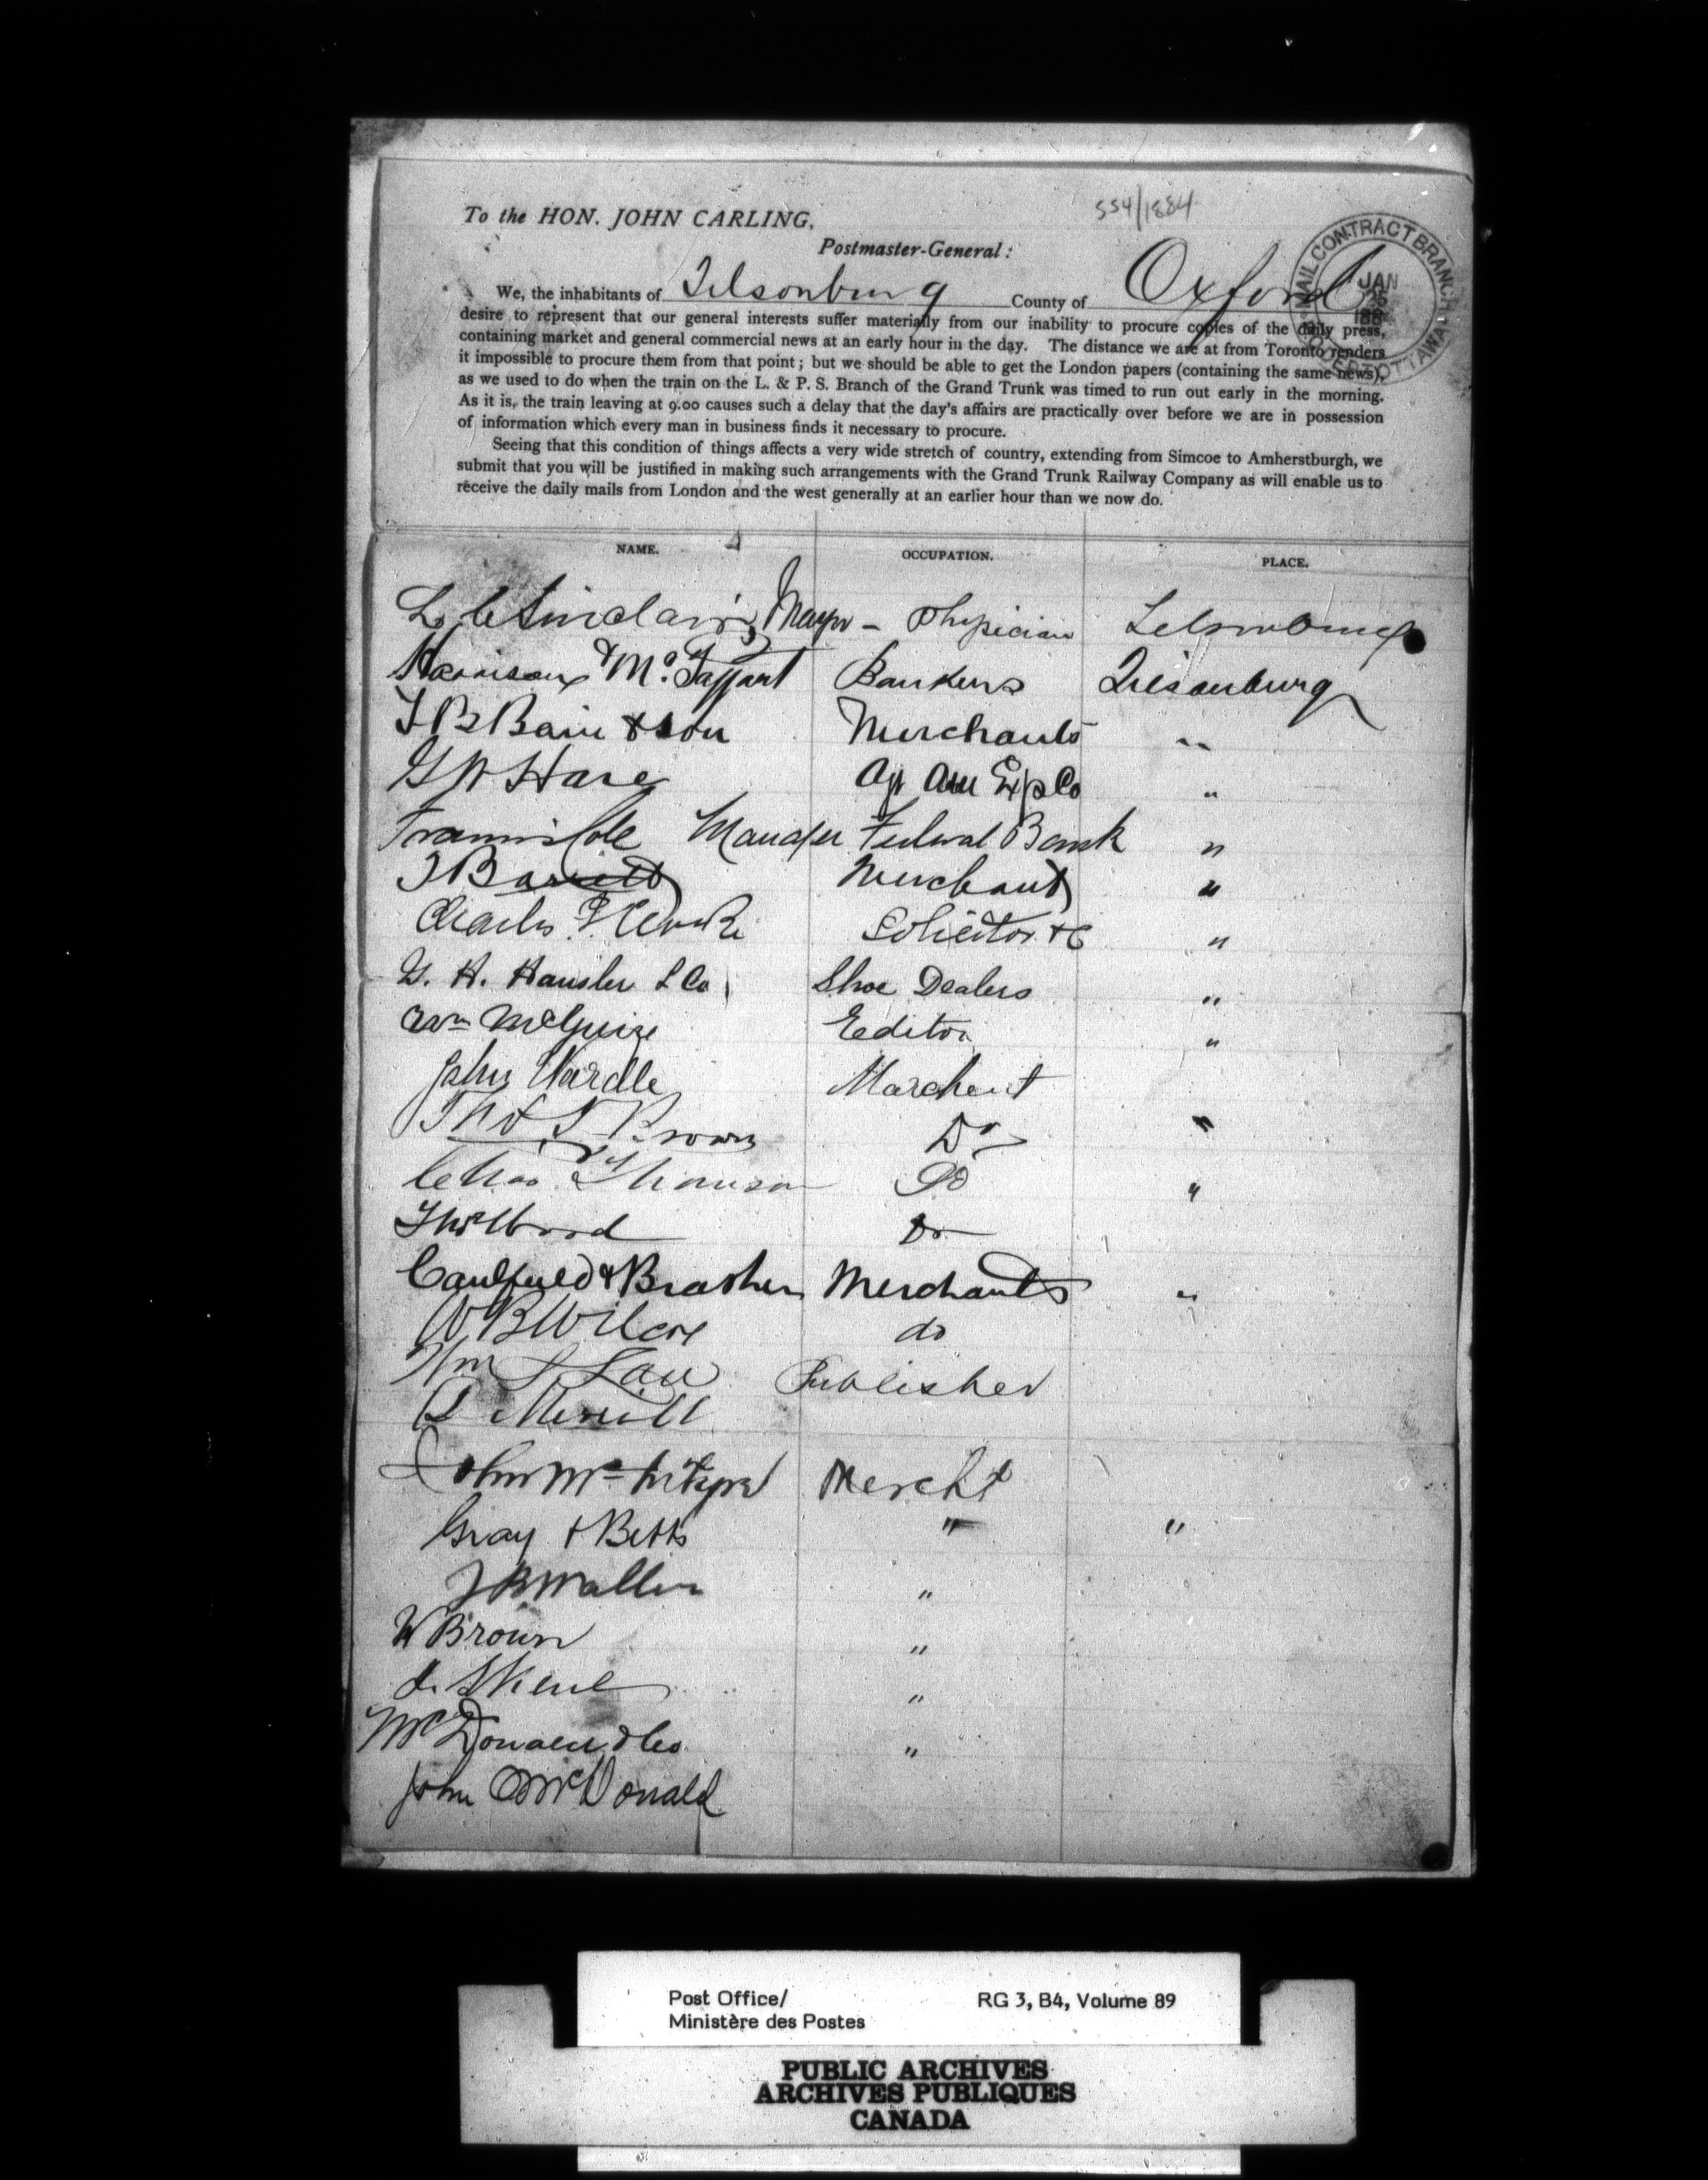 554/1884
To the HON. JOHN CARLING,
Postmaster-General:
MAIL CONTRACT BRANCH OTTAWA JAN 25 188
We, the inhabitants of Tilsonburg County of Oxford
desire to represent that our general interests suffer materially from our inability to procure copies of the daily press,
containing market and general commercial news at an early hour in the day. The distance we are at from Toronto renders
it impossible to procure them from that point; but we should be able to get the London papers (containing the same news),
as we used to do when the train on the L. & P. S. Branch of the Grand Trunk was timed to run out early in the morning.
As it is, the train leaving at 9.00 causes such a delay that the day's affairs are practically over before we are in possession
of information which every man in business finds it necessary to procure.
Seeing that this condition of things affects a very wide stretch of country, extending from Simcoe to Amherstburgh, we
submit that you will be justified in making such arrangements with the Grand Trunk Railway Company as will enable us to
receive the daily mails from London and the west generally at an earlier hour than we now do.
NAME. OCCUPATION. PLACE.
L. C. Sinclair, Mayor - Physician Tilsonburg
Harrison & McTaggart Bankers Tilsonburg
T B Bain & Son Merchants "
G W Hare Ag Am Exp Co "
Francis Cole Manager Federal Bank "
T Barrett Merchant "
Charles Solicitor &c "
G. H. Hansler & Co Shoe Dealers "
Wm McGuire Eeditor "
John Wardle Marchent
Thos Brown Do "
Chas Thomson Do "
Wood Do
Caulfield & Brasher Merchants "
W B Wilcox do
Wm S Law Publisher
Merrill
John McIntyre Mercht
Gray & Betts " "
J B Mallin "
W Brown "
Skene "
McDonald & Co "
John McDonald
Post Office/ RG 3, B4, Volume 89
Ministère des Postes
PUBLIC ARCHIVES
ARCHIVES PUBLIQUES
CANADA